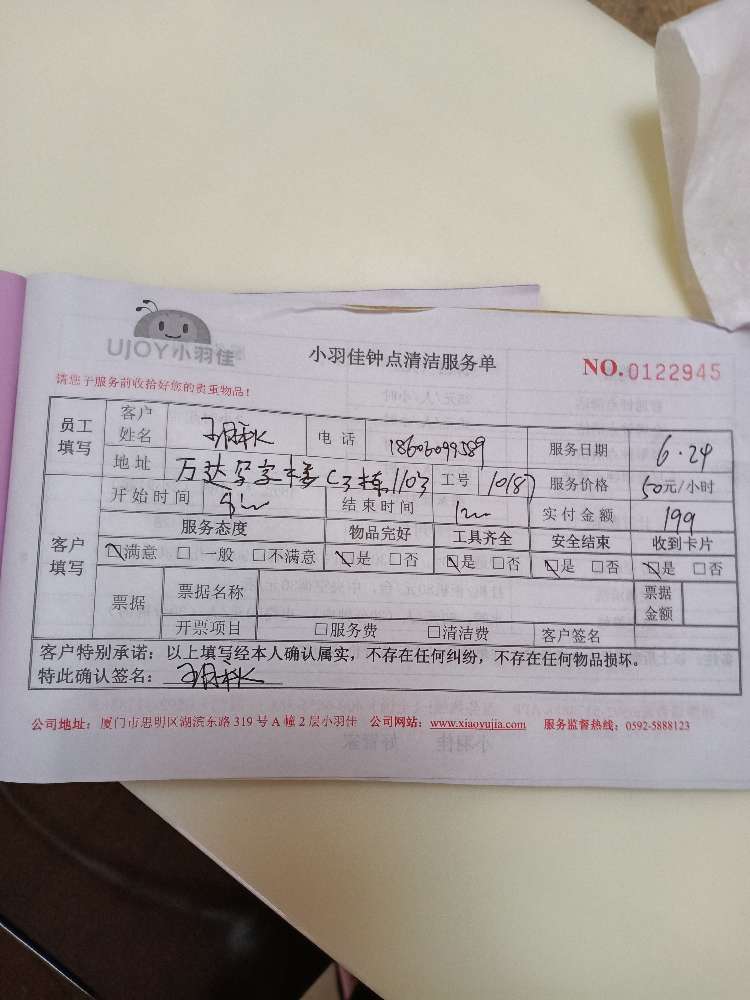 UJOY小羽佳
小羽佳钟点清洁服务单
NO.0122945
请您于服务前收拾好您的贵重物品!
员工填写 客户姓名 电话 18606099589 服务日期 6·24
地址 万达写字楼C3栋1103 工号 10187 服务价格 50元/小时
客户填写 开始时间 结束时间 实付金额 199
服务态度 物品完好 工具齐全 安全结束 收到卡片
☑满意 □一般 □不满意 ☑是 □否 ☑是 □否 ☑是 □否 ☑是 □否
票据 票据名称 票据金额
开票项目 □服务费 □清洁费 客户签名
客户特别承诺:以上填写经本人确认属实,不存在任何纠纷,不存在任何物品损坏。
特此确认签名:
公司地址:厦门市思明区湖滨东路319号A幢2层小羽佳 公司网站:www.xiaoyujia.com 服务监督热线:0592-5888123